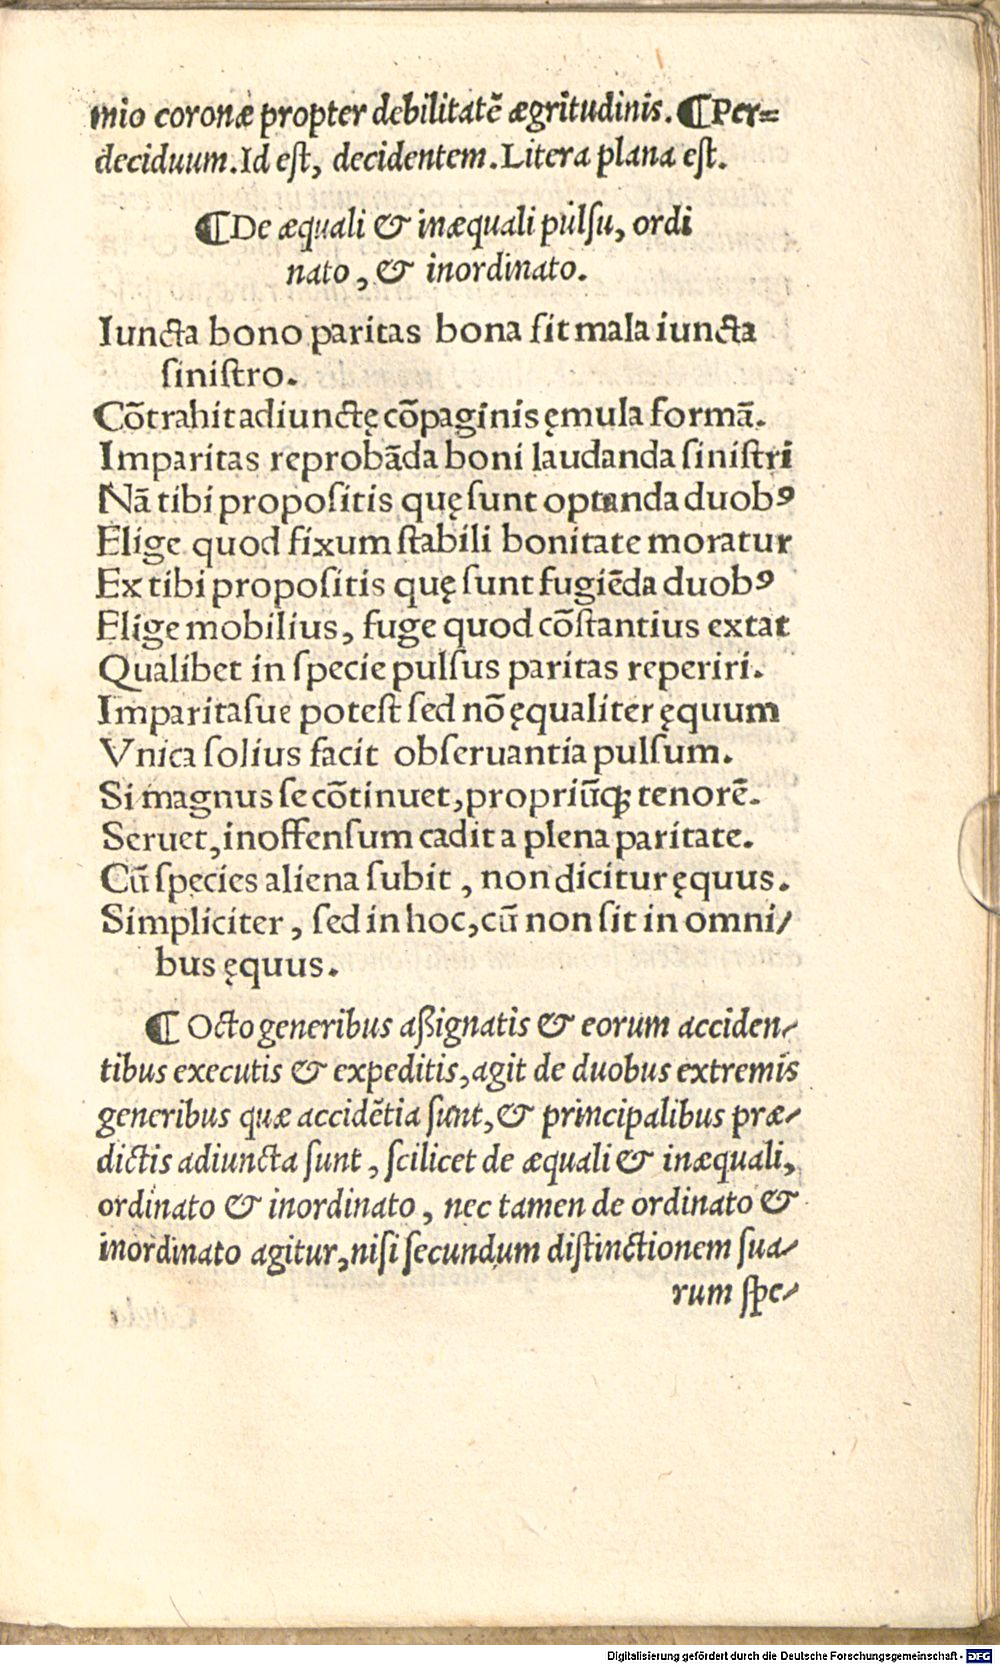 mio coronæ propter debilitatē ægritudinis. ¶ Per=
deciduum. Id eſt, decidentem. Litera plana eſt.
¶ De æquali & inæquali pulſu, ordi
nato, & inordinato.
Iuncta bono paritas bona ſit mala iuncta
ſiniſtro.
Cōtrahit adiunctę cōpaginis ęmula formā.
Imparitas reprobāda boni laudanda ſiniſtri
Nā tibi propoſitis quę ſunt optanda duobꝰ
Elige quod fixum ſtabili bonitate moratur
Ex tibi propoſitis quę ſunt fugiēda duobꝰ
Elige mobilius, fuge quod cōſtantius extat
Qualibet in ſpecie pulſus paritas reperiri.
Imparitaſue poteſt ſed nō ęqualiter ęquum
Vnica ſolius facit obſeruantia pulſum.
Si magnus ſe cōtinuet, propriūqꝫ tenorē.
Seruet, inoffenſum cadit a plena paritate.
Cū ſpecies aliena ſubit, non dicitur ęquus.
Simpliciter, ſed in hoc, cū non ſit in omni/
bus ęquus.
¶ Octo generibus aßignatis & eorum acciden/
tibus executis & expeditis, agit de duobus extremis
generibus quæ accidētia ſunt, & principalibus præ/
dictis adiuncta ſunt, ſcilicet de æquali & inæquali,
ordinato & inordinato, nec tamen de ordinato &
inordinato agitur, niſi ſecundum diſtinctionem ſua/
rum ſpe/
Digitalisierung gefördert durch die Deutsche Forschungsgemeinschaft - DFG